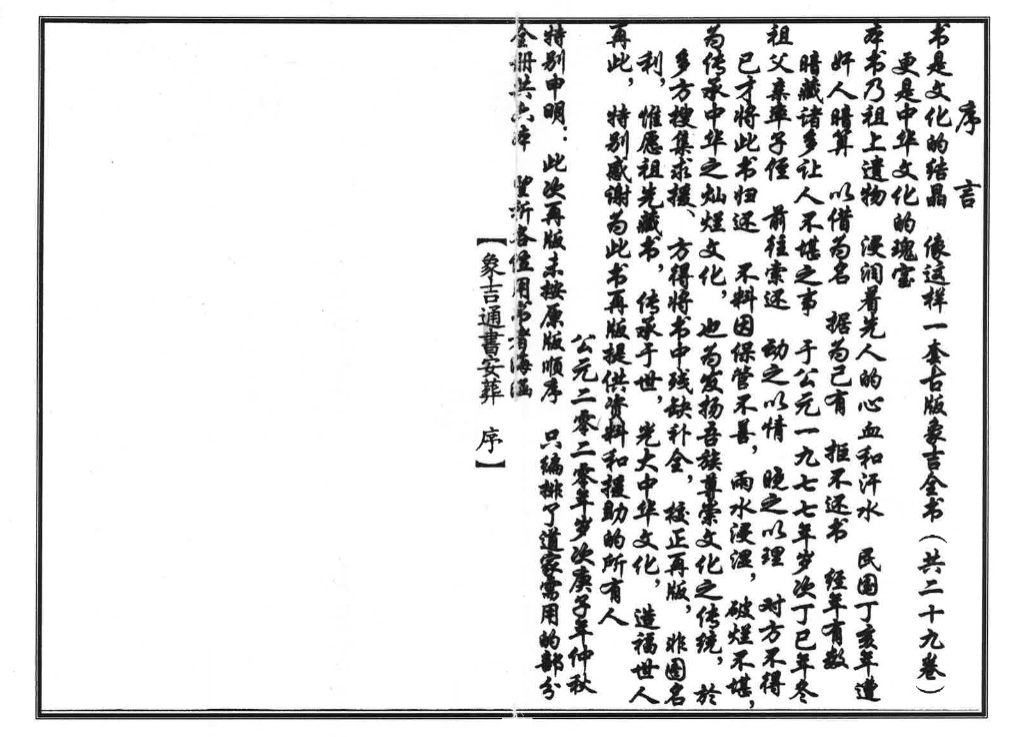 序 言
书是文化的结晶 像这样一套古版象吉全书(共二十九卷)
更是中华文化的瑰宝
本书乃祖上遗物 浸润着先人的心血和汗水 民国丁亥年遭
奸人暗算 以借为名 据为己有 拒不还书 经年有数
暗藏诸多让人不堪之事 于公元一九七七年岁次丁巳年冬
祖父亲率子侄 前往索还 动之以情 晓之以理 对方不得
已才将此书归还 不料因保管不善，雨水浸湿，破烂不堪，
为传承中华之灿烂文化，也为发扬吾族尊崇文化之传统，於
多方搜集求援、方得将书中残缺补全，校正再版，非图名
利，惟愿祖先藏书，传承于世，光大中华文化，造福世人
再此，特别感谢为此书再版提供资料和援助的所有人
公元二零二零年岁次庚子年仲秋
特别申明：此次再版未按原版顺序 只编排了道家需用的部分
全册共六本 望所各位用书者海涵
【象吉通書安葬 序】